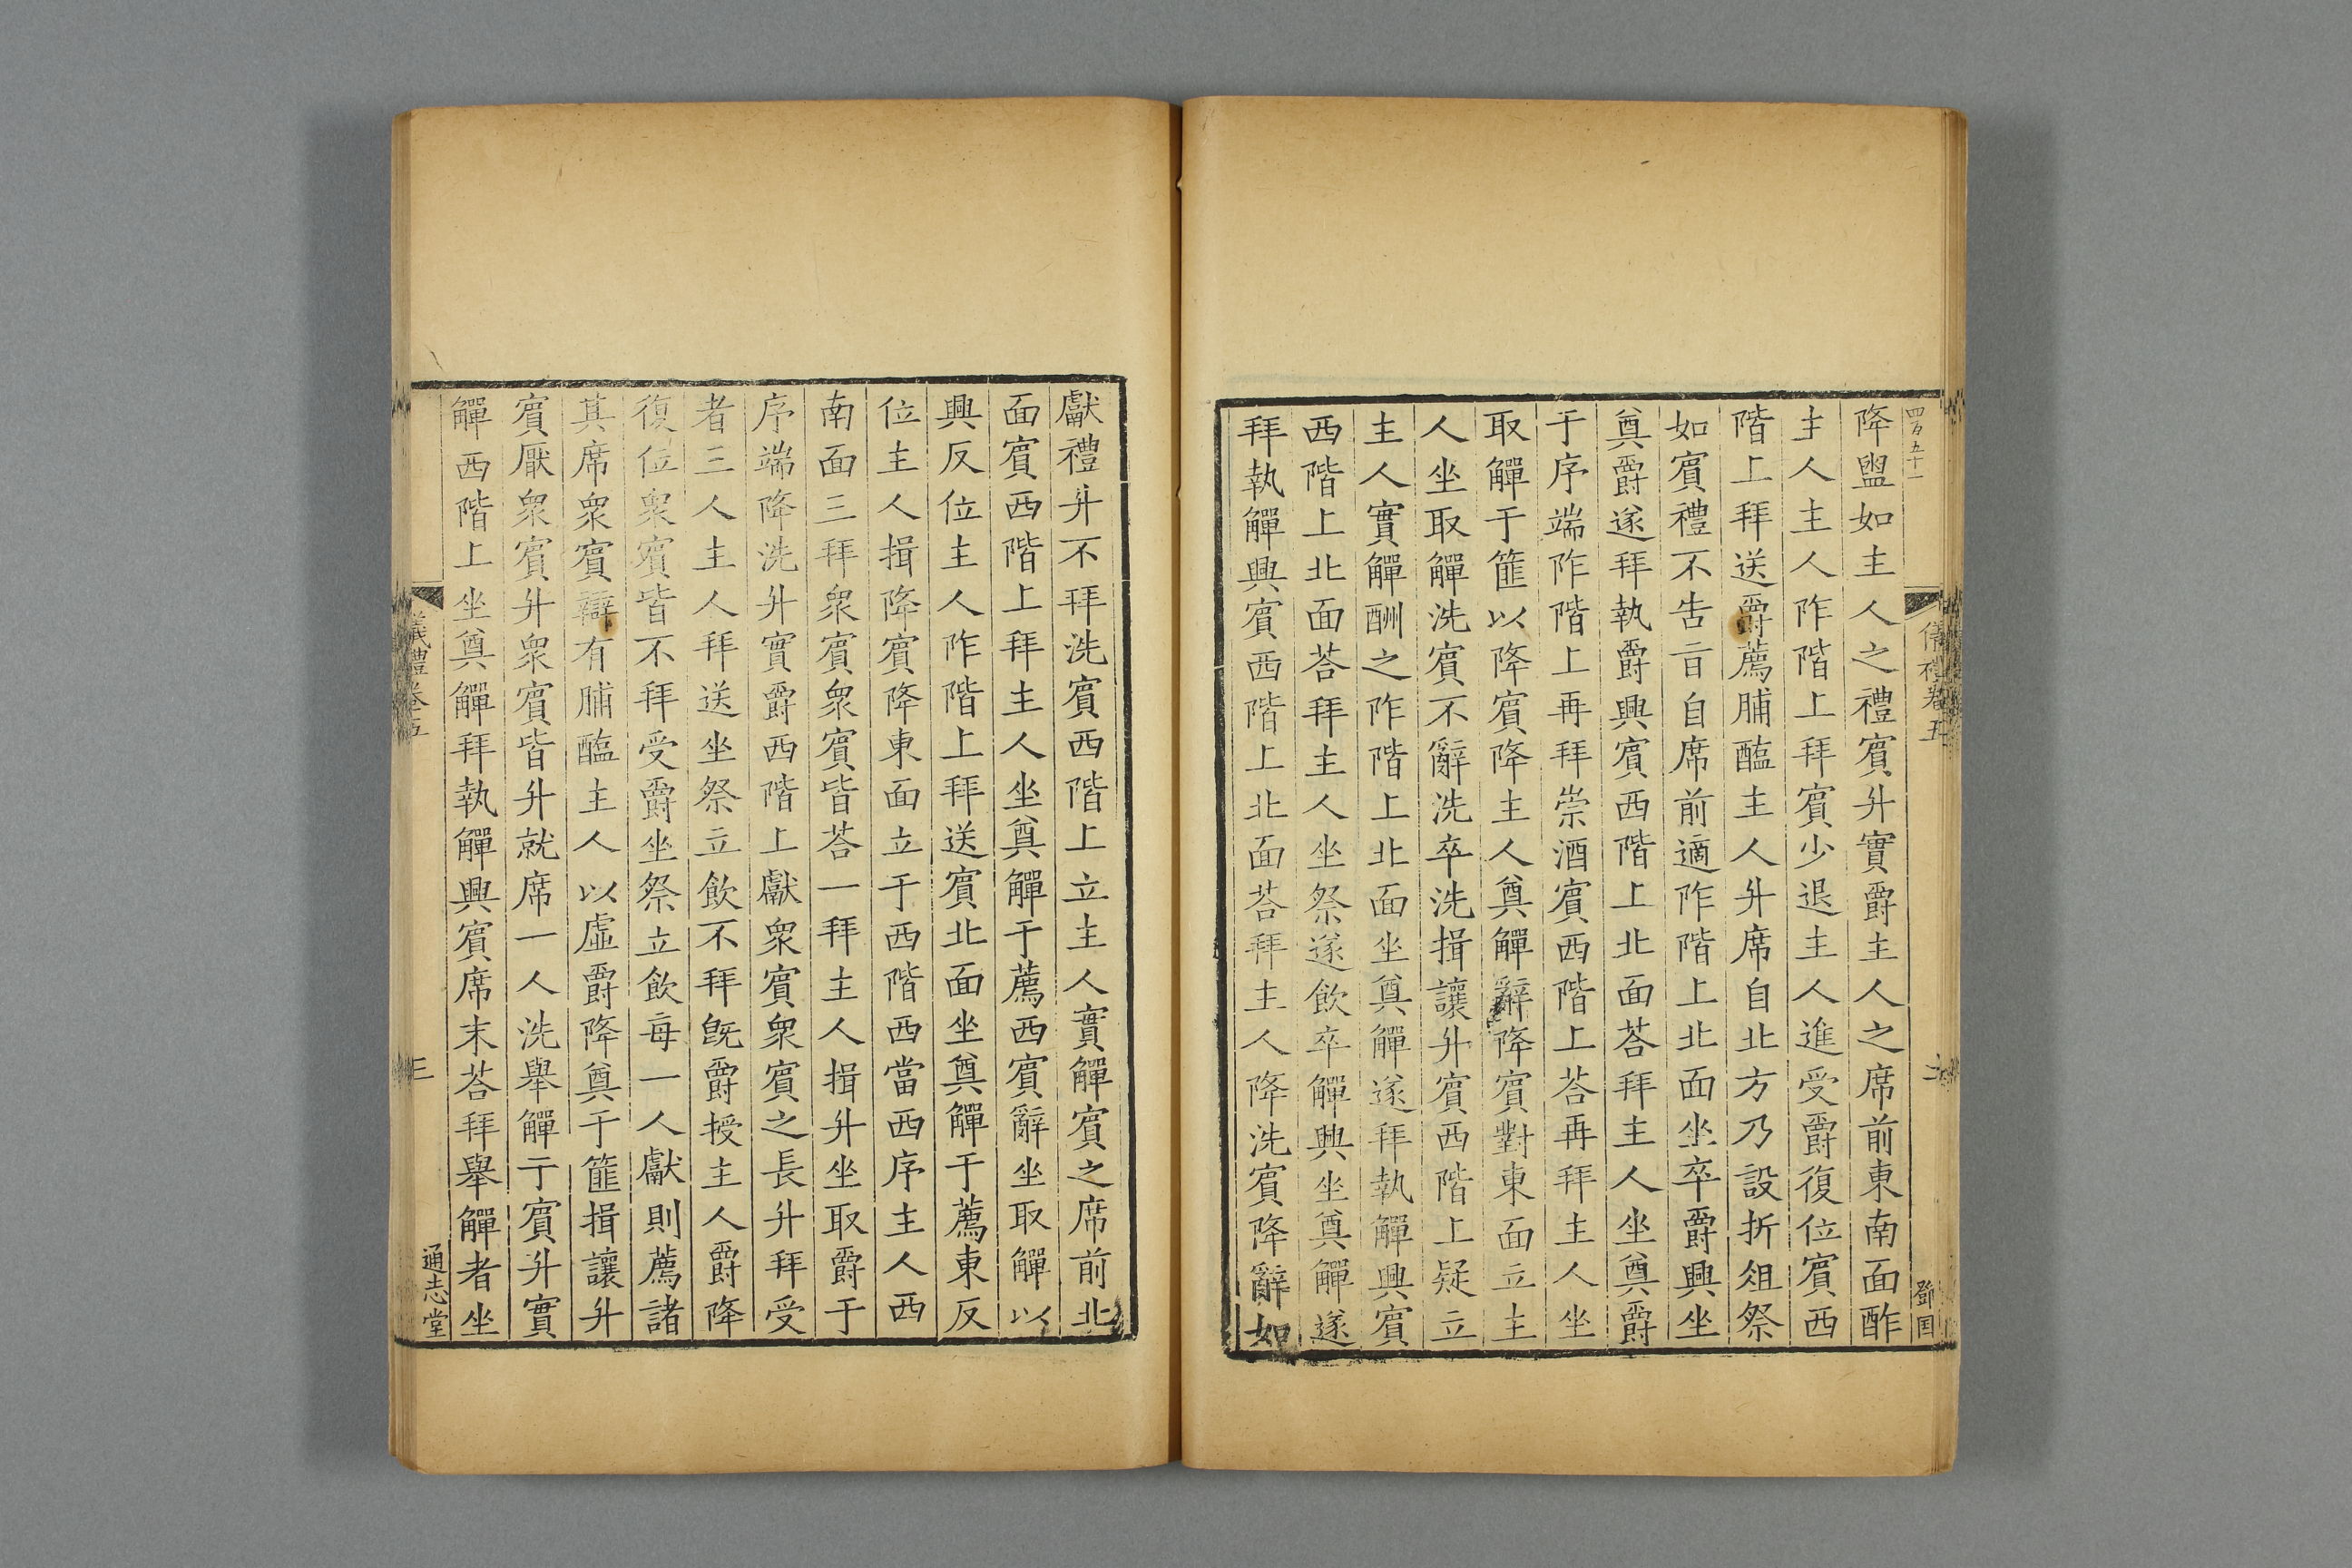 四百五十一
儀禮卷五
二
鄧囯
降盥如主人之禮賔升實爵主人之席前東南面酢
主人主人阼階上拜賔少退主人進受爵復位賔西
階上拜送爵薦脯醢主人升席自北方乃設折俎祭
如賔禮不告㫖自席前適阼階上北面坐卒爵興坐
奠爵遂拜執爵興賔西階上北面荅拜主人坐奠爵
于序端阼階上再拜崇酒賔西階上荅再拜主人坐
取觶于篚以降賔降主人奠觶辭降賔對東面立主
人坐取觶洗賔不辭洗卒洗揖讓升賔西階上疑立
主人實觶酬之阼階上北面坐奠觶遂拜執觶興賔
西階上北面荅拜主人坐祭遂飲卒觶興坐奠觶遂
拜執觶興賔西階上北面荅拜主人降洗賔降辭如
獻禮升不拜洗賔西階上立主人實觶賔之席前北
面賔西階上拜主人坐奠觶于薦西賔辭坐取觶以
興反位主人阼階上拜送賔北面坐奠觶于薦東反
位主人揖降賔降東面立于西階西當西序主人西
南面三拜衆賔衆賔皆荅一拜主人揖升坐取爵于
序端降洗升實爵西階上獻衆賔衆賔之長升拜受
者三人主人拜送坐祭立飲不拜旣爵授主人爵降
復位衆賔皆不拜受爵坐祭立飲每一人獻則薦諸
其席衆賔辯有脯醢主人以虛爵降奠于篚揖讓升
賔厭衆賔升衆賔皆升就席一人洗舉觶于賔升實
觶西階上坐奠觶拜執觶興賔席末荅拜舉觶者坐
儀禮卷五
三
通志堂